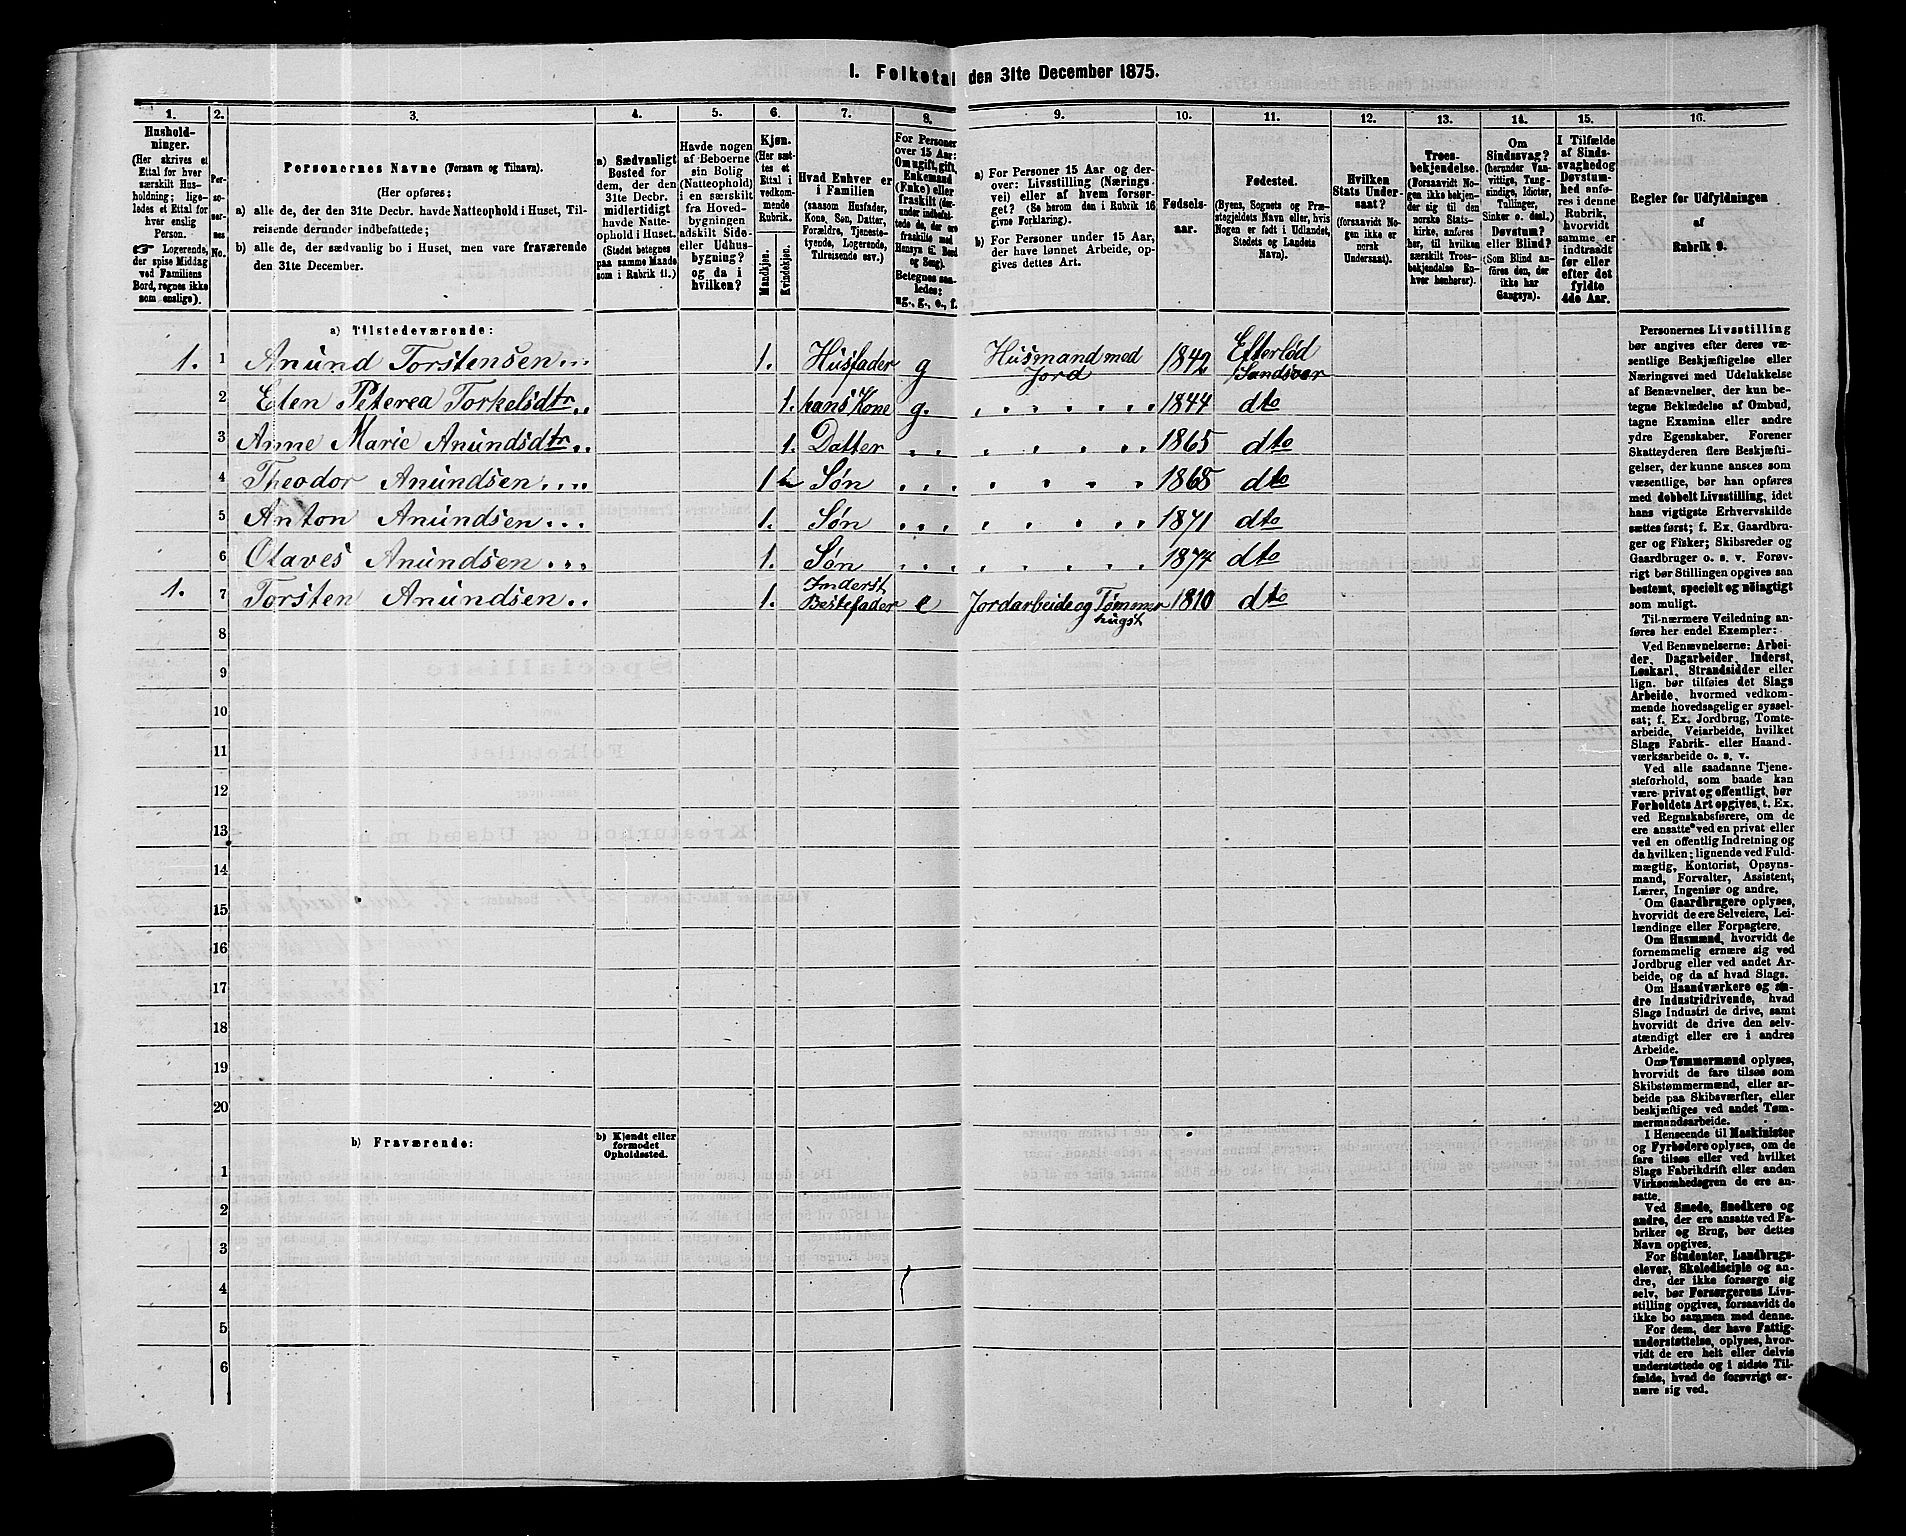 I. Folketal den 31te December 1875.
1. 2. 3. 4. 5. 6. 7. 8. 9. 10. 11. 12. 13. 14. 15. 16.
Hushold-
ninger.
(Her skrives et
Ettal for hver
særskilt Hus-
holdning; lige-
ledes et Ettal for
hver enslig
Person.
☞ Logerende,
der spise Middag
ved Familiens
Bord, regnes ikke
som enslige).
Per-
so-
ner-
nes
No.
Personernes Navne (Fornavn og Tilnavn).
(Her opføres:
a) alle de, der den 31te Decbr. havde Natteophold i Huset, Til-
reisende derunder indbefattede;
b) alle de, der sædvanlig bo i Huset, men vare fraværende
den 31te December.
a) Sædvanligt
Bosted for
dem, der den
31te Decbr.
midlertidigt
havde Natte-
ophold i Huset.
(Stedet betegnes
paa samme Maade
som i Rubrik 11.)
Havde nogen
af Beboerne
sin Bolig
(Natteophold)
i en særskilt
fra Hoved-
bygningen
adskilt Side-
eller Udhus-
bygning?
og da i
hvilken?
Kjøn.
(Her sæt-
tes et
Ettal i
vedkom-
mende
Rubrik.
Mandkjøn.
Kvindekjøn.
Hvad Enhver er
i Familien
(saasom Husfader,
Kone, Søn, Datter,
Forældre, Tjeneste-
tyende, Logerende,
Tilreisende osv.)
For Personer
over 15 Aar:
Om ugift, gift,
Enkemand
(Enke) eller
fraskilt (der-
under indbefat-
tede de, der ere
fraskilte med
Hensyn til Bord
og Seng).
Betegnes saa-
ledes:
ug., g., e., f.
a) For Personer 15 Aar og der-
over: Livsstilling (Nærings-
vei) eller af hvem forsør-
get? (Se herom den i Rubrik 16
givne Forklaring).
b) For Personer under 15 Aar,
der have lønnet Arbeide, op-
gives dettes Art.
Fødsels-
aar.
Fødested.
(Byens, Sognets eller Præ-
stegjeldets Navn eller, hvis
Nogen er født i Udlandet,
Stedets og Landets
Navn).
Hvilken
Stats Under-
saat?
(forsaavidt No-
gen ikke er
norsk
Undersaat).
Troes-
bekjendelse.
(Forsaavidt No-
gen ikke bekjen-
der sig til den
norske Stats-
kirke, anføres
her, til hvilken
særskilt Troes-
bekjendelse En-
hver henhører).
Om
Sindssvag?
(herunder Van-
vittige, Tung-
sindige, Idioter,
Tullinger,
Sinker o. desl.)
Døvstum?
eller Blind?
(Som Blind an-
føres den, der
ikke har
Gangsyn).
I Tilfælde
af Sinds-
svaghed og
Døvstum-
hed anfø-
res i denne
Rubrik,
hvorvidt
samme er
indtraadt
før eller
efter det
fyldte
4de Aar.
Regler for Udfyldningen
af
Rubrik 9.
a) Tilstedeværende:
1. 1 Anund Torstensen 1. Husfader g Husmand med Jord 1842 Efterlød Sandsvær
2 Elen Peterea Torkelsdtr 1. hans Kone g. 1844 dto
3 Anne Marie Anundsdtr 1. Datter 1865 dto
4 Theodor Anundsen 1 Søn 1868 dto
5 Anton Anundsen 1. Søn 1871 dto
6 Olaves Anundsen 1. Søn 1874 dto
1. 7 Torsten Anundsen 1. Inderst Bestefader e Jordarbeide og Tømmerhugst 1810 dto
8
9
10
11
12
13
14
15
16
17
18
19
20
b) Fraværende:
b) Kjendt eller
formodet
Opholdssted.
1
2
3
4
5
6
Personernes Livsstilling
bør angives efter deres væ-
sentlige Beskjæftigelse eller
Næringsvei med Udelukkelse
af Benævnelser, der kun be-
tegne Beklædelse af Ombud,
tagne Examina eller andre
ydre Egenskaber. Forener
Skatteyderen flere Beskjæfti-
gelser, der kunne ansees som
væsentlige, bør han opføres
med dobbelt Livsstilling, idet
hans vigtigste Erhvervskilde
sættes først; f. Ex. Gaardbru-
ger og Fisker; Skibsreder og
Gaardbruger o. s. v. Forøv-
rigt bør Stillingen opgives saa
bestemt, specielt og nøiagtigt
som muligt.
Til nærmere Veiledning an-
føres her endel Exempler:
Ved Benævnelserne: Arbei-
der, Dagarbeider, Inderst,
Løskarl, Strandsidder eller
lign. bør tilføies det Slags
Arbeide, hvormed vedkom-
mende hovedsagelig er syssel-
sat; f. Ex. Jordbrug, Tomte-
arbeide, Veiarbeide, hvilket
Slags Fabrik- eller Haand-
værksarbeide o. s. v.
Ved alle saadanne Tjene-
steforhold, som baade kan
være privat og offentligt, bør
Forholdets Art opgives, t. Ex.
ved Regnskabsførere, om de
ere ansatte ved en privat eller
ved en offentlig Indretning og
da hvilken; lignende ved Fuld-
mægtig, Kontorist, Opsyns-
mand, Forvalter, Assistent,
Lærer, Ingeniør og andre.
Om Gaardbrugere oplyses,
hvorvidt de ere Selveiere, Lei-
lændinge eller Forpagtere.
Om Husmænd, hvorvidt de
fornemmelig ernære sig ved
Jordbrug eller ved andet Ar-
beide, og da af hvad Slags.
Om Haandværkere og an-
dre Industridrivende, hvad
Slags Industri de drive, samt
hvorvidt de drive den selv-
stændigt eller ere i andres
Arbeide.
Om Tømmermænd oplyses,
hvorvidt de fare tilsøs som
Skibstømmermænd, eller ar-
beide paa Skibsværfter, eller
beskjæftiges ved andet Tøm-
mermandsarbeide.
I Henseende til Maskinister
og Fyrbødere oplyses, om de
fare tilsøs eller ved hvilket
Slags Fabrikdrift eller anden
Virksomhedsgren de ere an-
satte.
Ved Smede, Snedkere og
andre, der ere ansatte ved Fa-
briker og Brug, bør dettes
Navn opgives.
For Studenter, Landbrugs-
elever, Skoledisciple og an-
dre, der ikke forsørge sig
selv, bør Forsørgerens Livs-
stilling opgives, forsaavidt de
ikke bo sammen med denne.
For dem, der have Fattig-
understøttelse, oplyses, hvor-
vidt de ere helt eller delvis
understøttede og i sidste Til-
fælde, hvad de forøvrigt er-
nære sig ved.